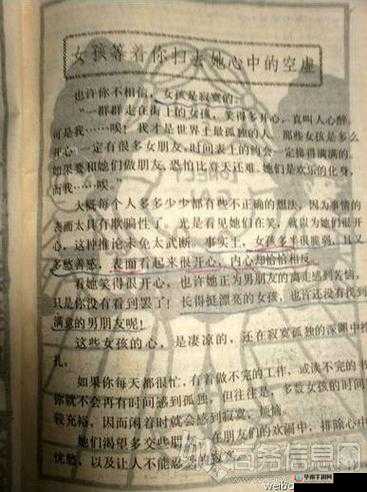 女孩等着你扫去她心中的空虚
也许你不相信，女孩是寂寞的。
“一群群走在街上的女孩，笑得多开心，真叫人心醉，
可是我……唉！我才是世界上最孤独的人。那些女孩是多么
开心，一定有很多女朋友，时间表上的约会一定排得满满的。
如果要和她们做朋友，恐怕比登天还难。她们是欢乐的化身，
而我……唉！
大概每个人多多少少都有些不正确的想法，因为事情的
表面太具有欺骗性了。光是看见她们在笑，就以为她们很开
心，这种推论未免太武断。事实上，女孩多半很脆弱，且又
多愁善感，表面看起来很开心，内心却恰恰相反。
看她笑得很开心，也许她正为男朋友的离走感到苦恼，
只是你没有看到罢了！长得挺漂亮的女孩，也许还没有找到
满意的男朋友呢！
这些女孩的心，是凄凉的，还在寂寞孤独的深渊中挣
扎。
如果你每天都很忙，有着做不完的工作，或读不完的书
你就不会再有时间感到孤独，但往往是，多数女孩的时间
较充裕，因而闲着时就会感到寂寞、烦恼。
她们渴望多交些朋友，在朋友们的欢闹中，排除心中
忧愁，以及让人不能忍受的寂寞。
华南手游网